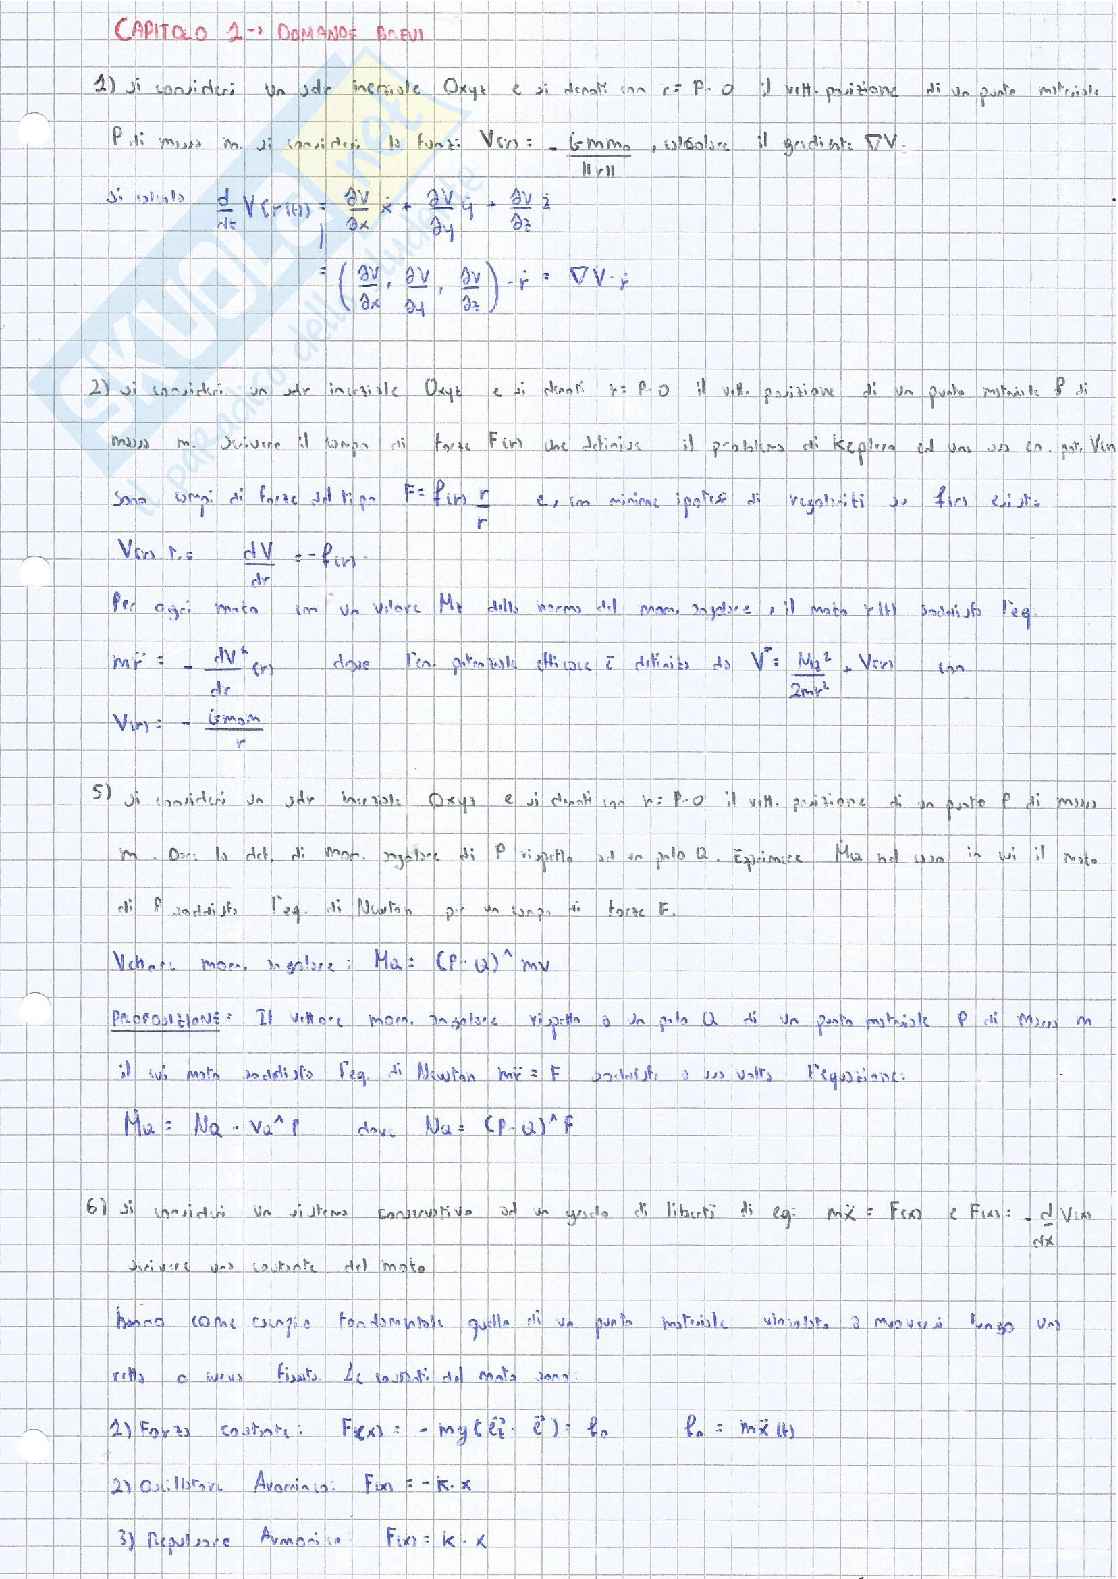 CAPITOLO 1 → DOMANDE BREVI
1) si consideri un sdr inerziale Oxyz e si denoti con r = P-O il vett. posizione di un punto materiale
P di massa m. si consideri la funz: V(r) = - G m m₀ / ||r|| , calcolare il gradiente ∇V.
si calcola d/dt V(r(t)) = ∂V/∂x ẋ + ∂V/∂y ẏ + ∂V/∂z ż
= (∂V/∂x, ∂V/∂y, ∂V/∂z) · ṙ = ∇V · ṙ
2) si consideri un sdr inerziale Oxyz e si denoti r = P-O il vett. posizione di un punto materiale P di
massa m. scrivere il campo di forze F(r) che definisce il problema di Keplero ed una sua en. pot. V(r)
sono campi di forze del tipo F = f(r) r/r e, con minime ipotesi di regolarità su f(r) esiste
V(r) t.c. dV/dr = - f(r).
Per ogni moto con un valore della norma del mom. angolare, il moto r(t) soddisfa l'eq.
m r̈ = - dV*/dr (r) dove l'en. potenziale efficace è definita da V* = M₀²/2mr² + V(r) con
V(r) = - G m₀ m / r
5) si consideri un sdr inerziale Oxyz e si denoti con r = P-O il vett. posizione di un punto P di massa
m. Dare la def. di mom. angolare di P rispetto ad un polo Q. Esprimere ṀQ nel caso in cui il moto
di P soddisfa l'eq. di Newton per un campo di forze F.
Vettore mom. angolare: MQ = (P-Q) ^ mv
PROPOSIZIONE: Il vettore mom. angolare rispetto a un polo Q di un punto materiale P di massa m
il cui moto soddisfa l'eq. di Newton m r̈ = F soddisfa a sua volta l'equazione:
ṀQ = NQ - vQ ^ p dove NQ = (P-Q) ^ F
6) si consideri un sistema conservativo ad un grado di libertà di eq: m ẍ = F(x) e F(x) = - d/dx V(x)
scrivere una costante del moto
hanno come esempio fondamentale quello di un punto materiale vincolato a muoversi lungo una
retta o curva fissata. Le costanti del moto sono:
1) Forza costante: F(x) = - mg (e⃗z · e⃗) = f₀ f₀ = m ẍ(t)
2) Oscillatore Armonico: F(x) = -k · x
3) Repulsore Armonico: F(x) = k · x